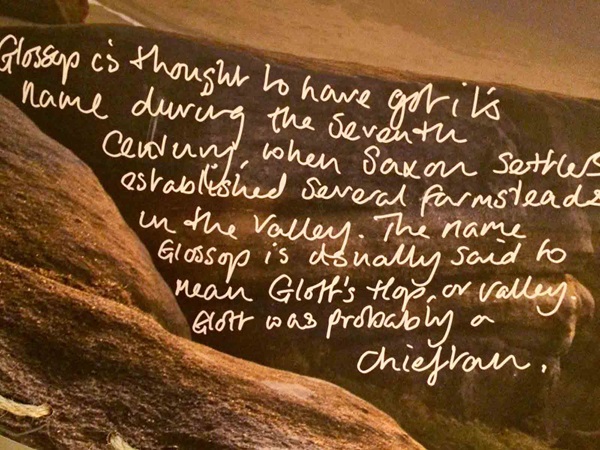 Glossop is thought to have got it's
name during the Seventh
Century, when Saxon settlers
established several farmsteads
in the valley. The name
Glossop is usually said to
mean Glott's Hop, or valley.
Glott was probably a
chieftan.